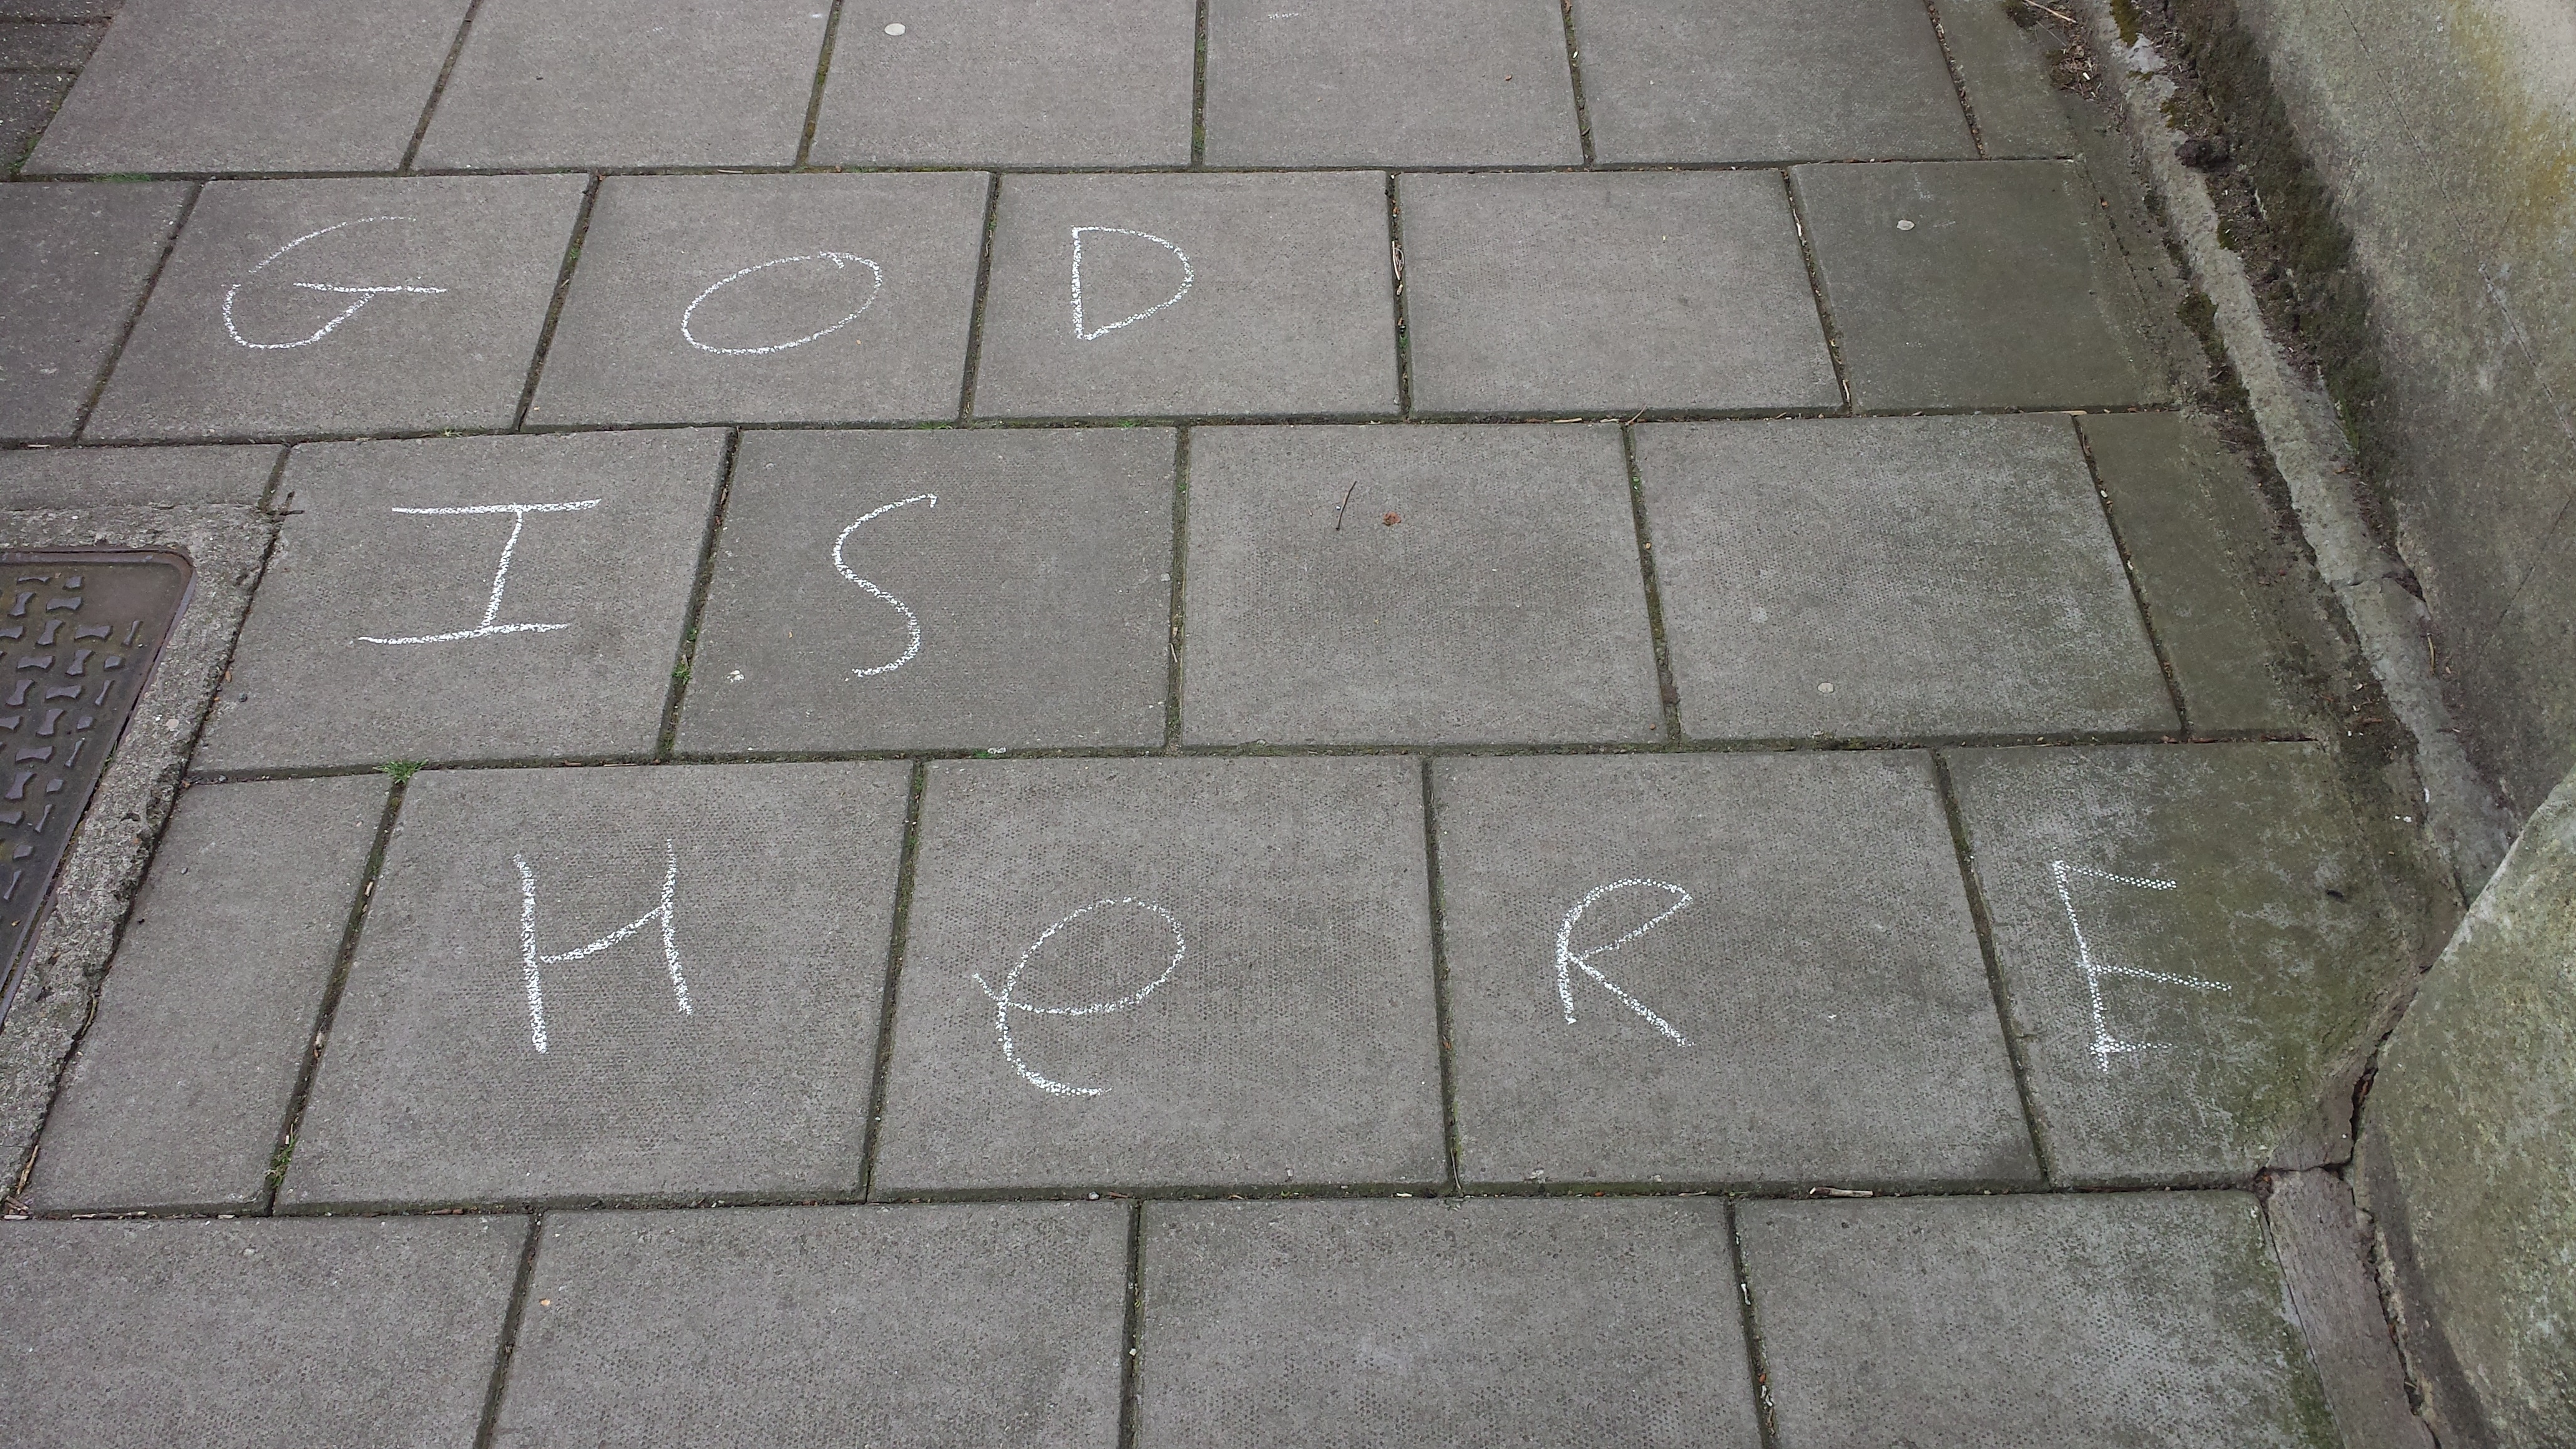 GOD
IS
HeRE